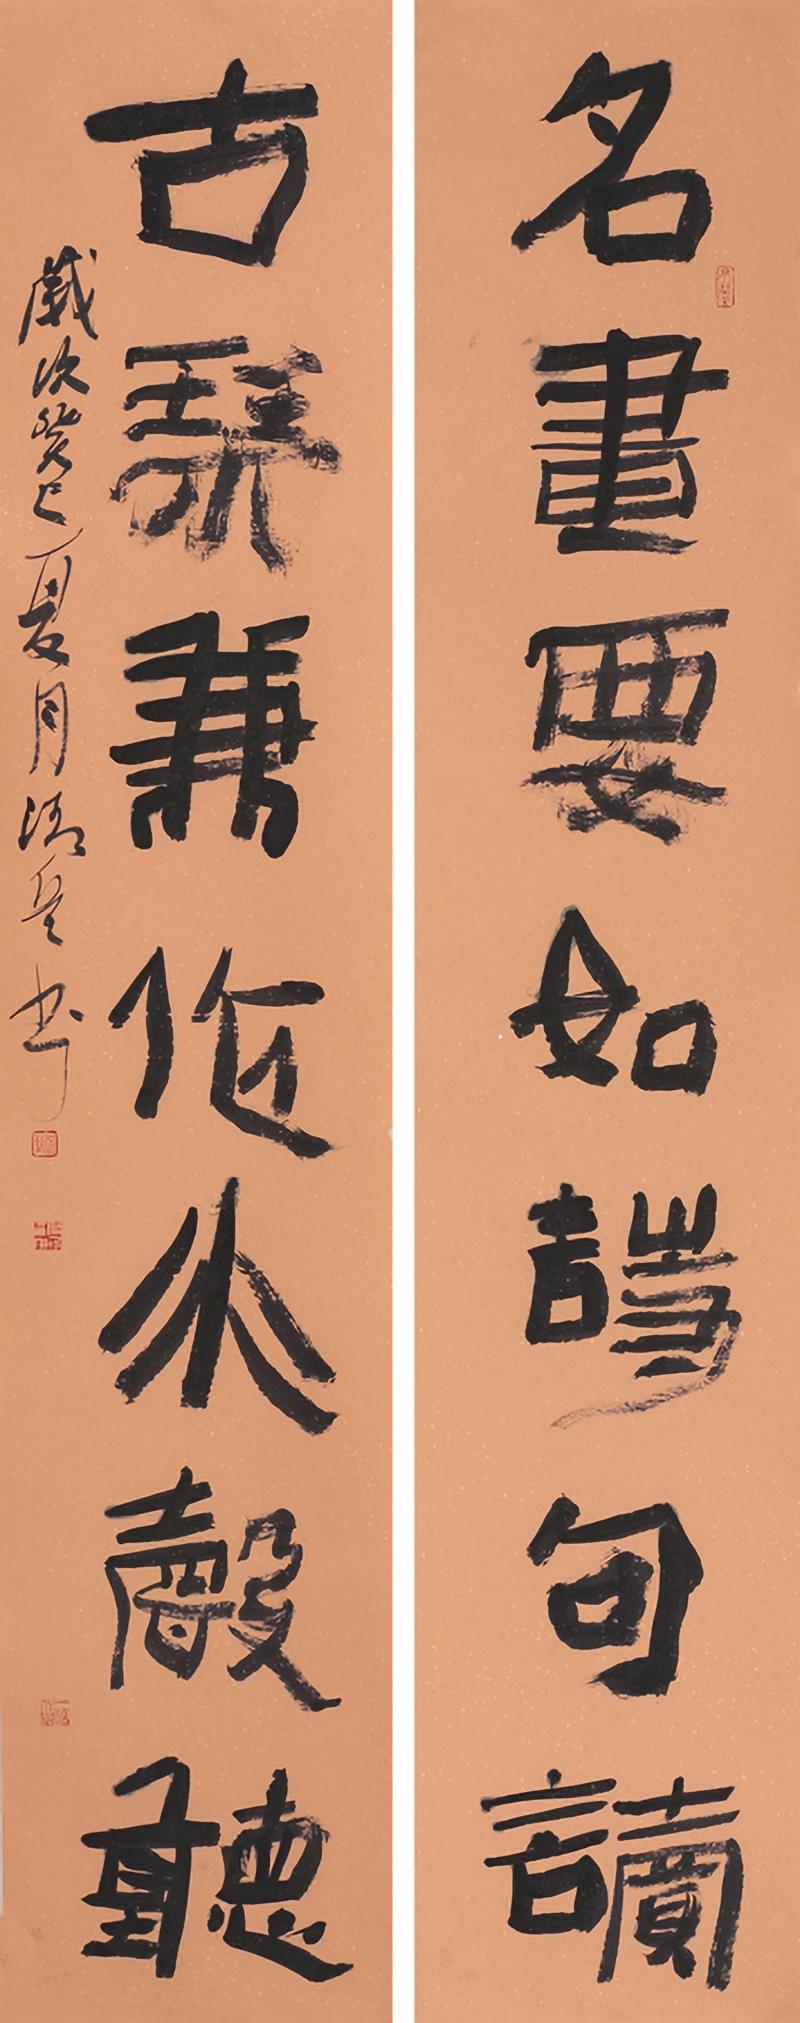 名畫要如詩句讀
古琴兼作水聲聽
歲次癸巳夏月 書